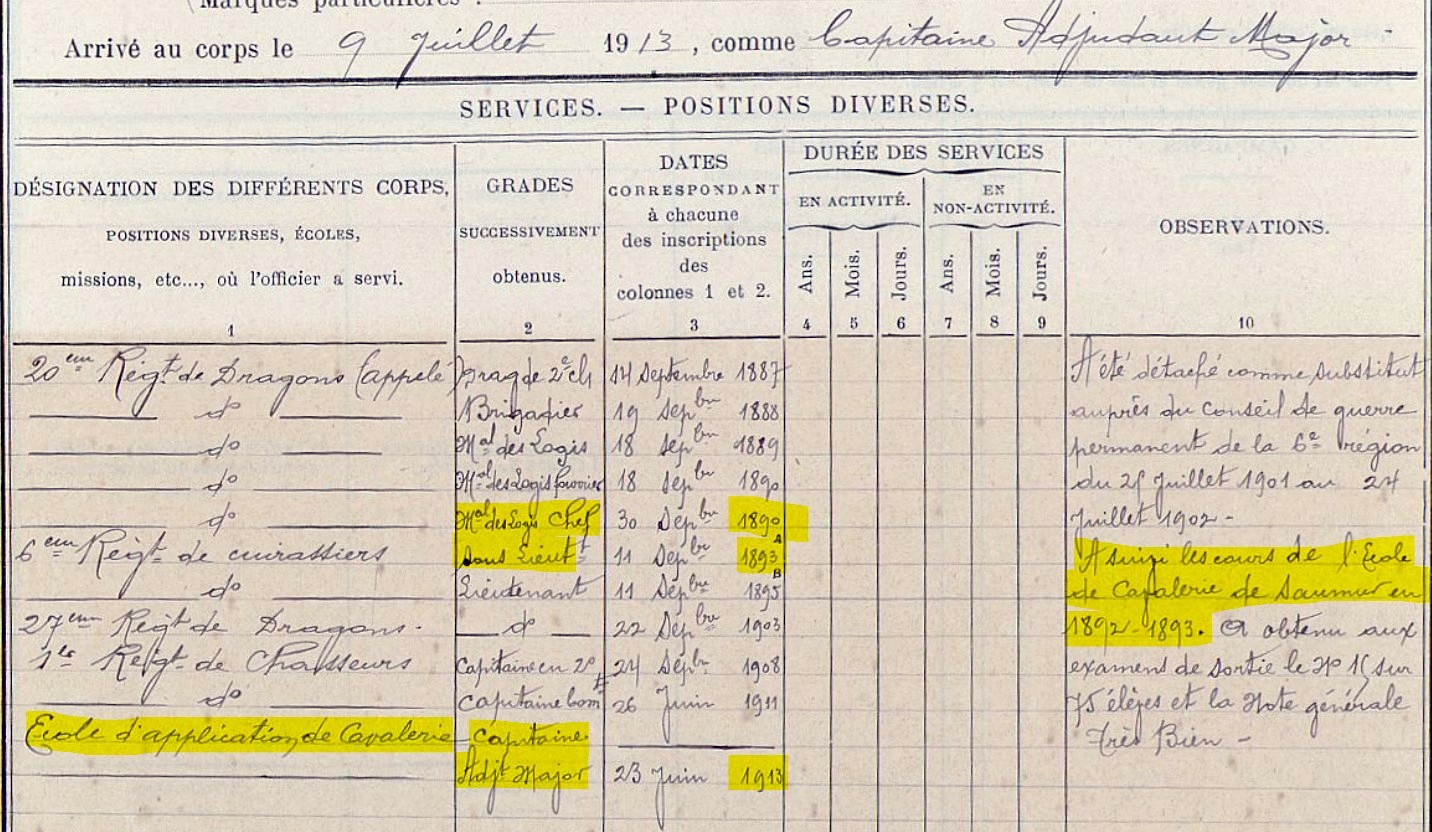 (Marques particulières :
Arrivé au corps le 9 Juillet 1913, comme Capitaine Adjudant Major
SERVICES. — POSITIONS DIVERSES.
DÉSIGNATION DES DIFFÉRENTS CORPS,
POSITIONS DIVERSES, ÉCOLES,
missions, etc..., où l'officier a servi.
1
GRADES
SUCCESSIVEMENT
obtenus.
2
DATES
CORRESPONDANT
à chacune
des inscriptions
des
colonnes 1 et 2.
3
DURÉE DES SERVICES
EN ACTIVITÉ.
EN
NON-ACTIVITÉ.
Ans. Mois. Jours. Ans. Mois. Jours.
4 5 6 7 8 9
OBSERVATIONS.
10
20eme Régt de Dragons (appelé) Drag de 2e cl 14 Septembre 1887
do Brigadier 19 Sepbre 1888
do Mal des Logis 18 Sepbre 1889
do Mal des Logis fourrier 18 Sepbre 1890
do Mal des Logis Chef 30 Sepbre 1890
6eme Régt de cuirassiers Sous Lieutt 11 Sepbre 1893 A
do Lieutenant 11 Sepbre 1895 B
27eme Régt de Dragons. do 22 Sepbre 1903
1er Régt de Chasseurs Capitaine en 2d 24 Sepbre 1908
do Capitaine Comt 26 Juin 1911
Ecole d'application de Cavalerie Capitaine
Adjt Major 23 Juin 1913
A été détaché comme substitut
auprès du Conseil de guerre
permanent de la 6e région
du 25 Juillet 1901 au 24
Juillet 1902 -
A suivi les cours de l'Ecole
de Cavalerie de Saumur en
1892-1893. A obtenu aux
examens de sortie le No 15 sur
75 élèves et la Note générale
Très Bien -